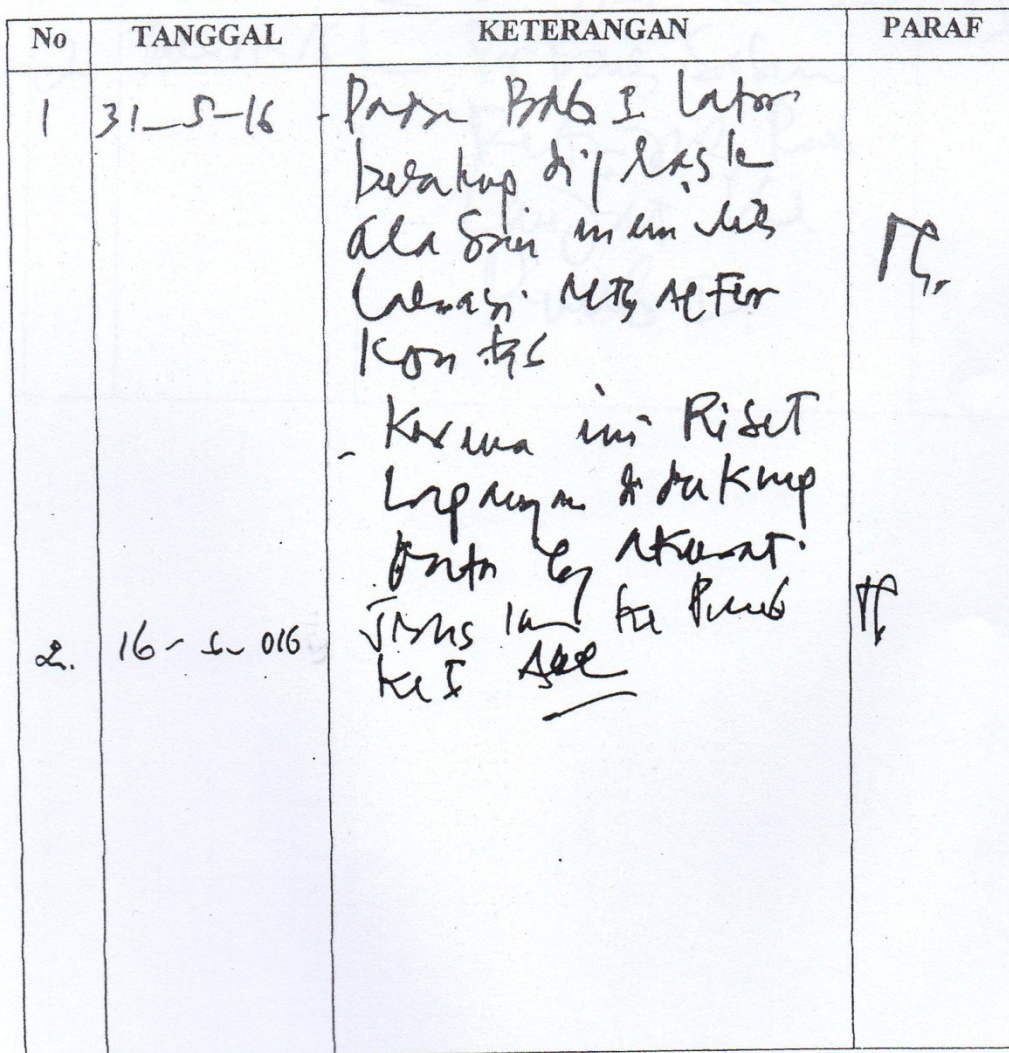 No TANGGAL KETERANGAN PARAF
1 31-5-16 - Pada Bab I latar
belakang dijelask
alasan memilih
lokasi MTs
- Karena ini Riset
Lapangan didukung
Data yg Akurat.
2. 16- -016 ke Pemb
ke I Acc